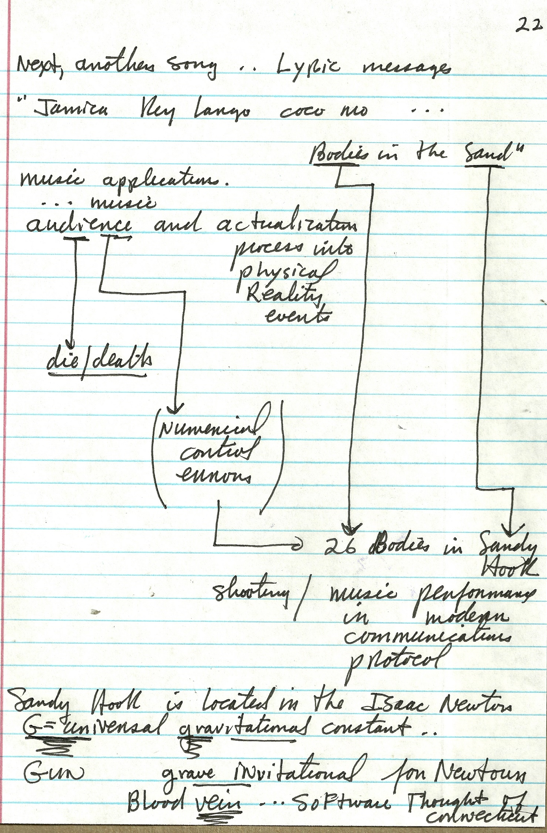 22
Next, another song .. Lyric messages
"Jamica Key Largo coco mo ...
Bodies in the Sand"
music application.
... music
audience and actualization
process into
physical
Reality
events
die/death
(Numerical
control
errors)
26 Bodies in Sandy
Hook
shooting / music performance
in modern
communications
protocol
Sandy Hook is located in the Isaac Newton
G = universal gravitational constant ..
Gun grave invitational for Newtown
Blood vein ... Software Thought of
connecticut